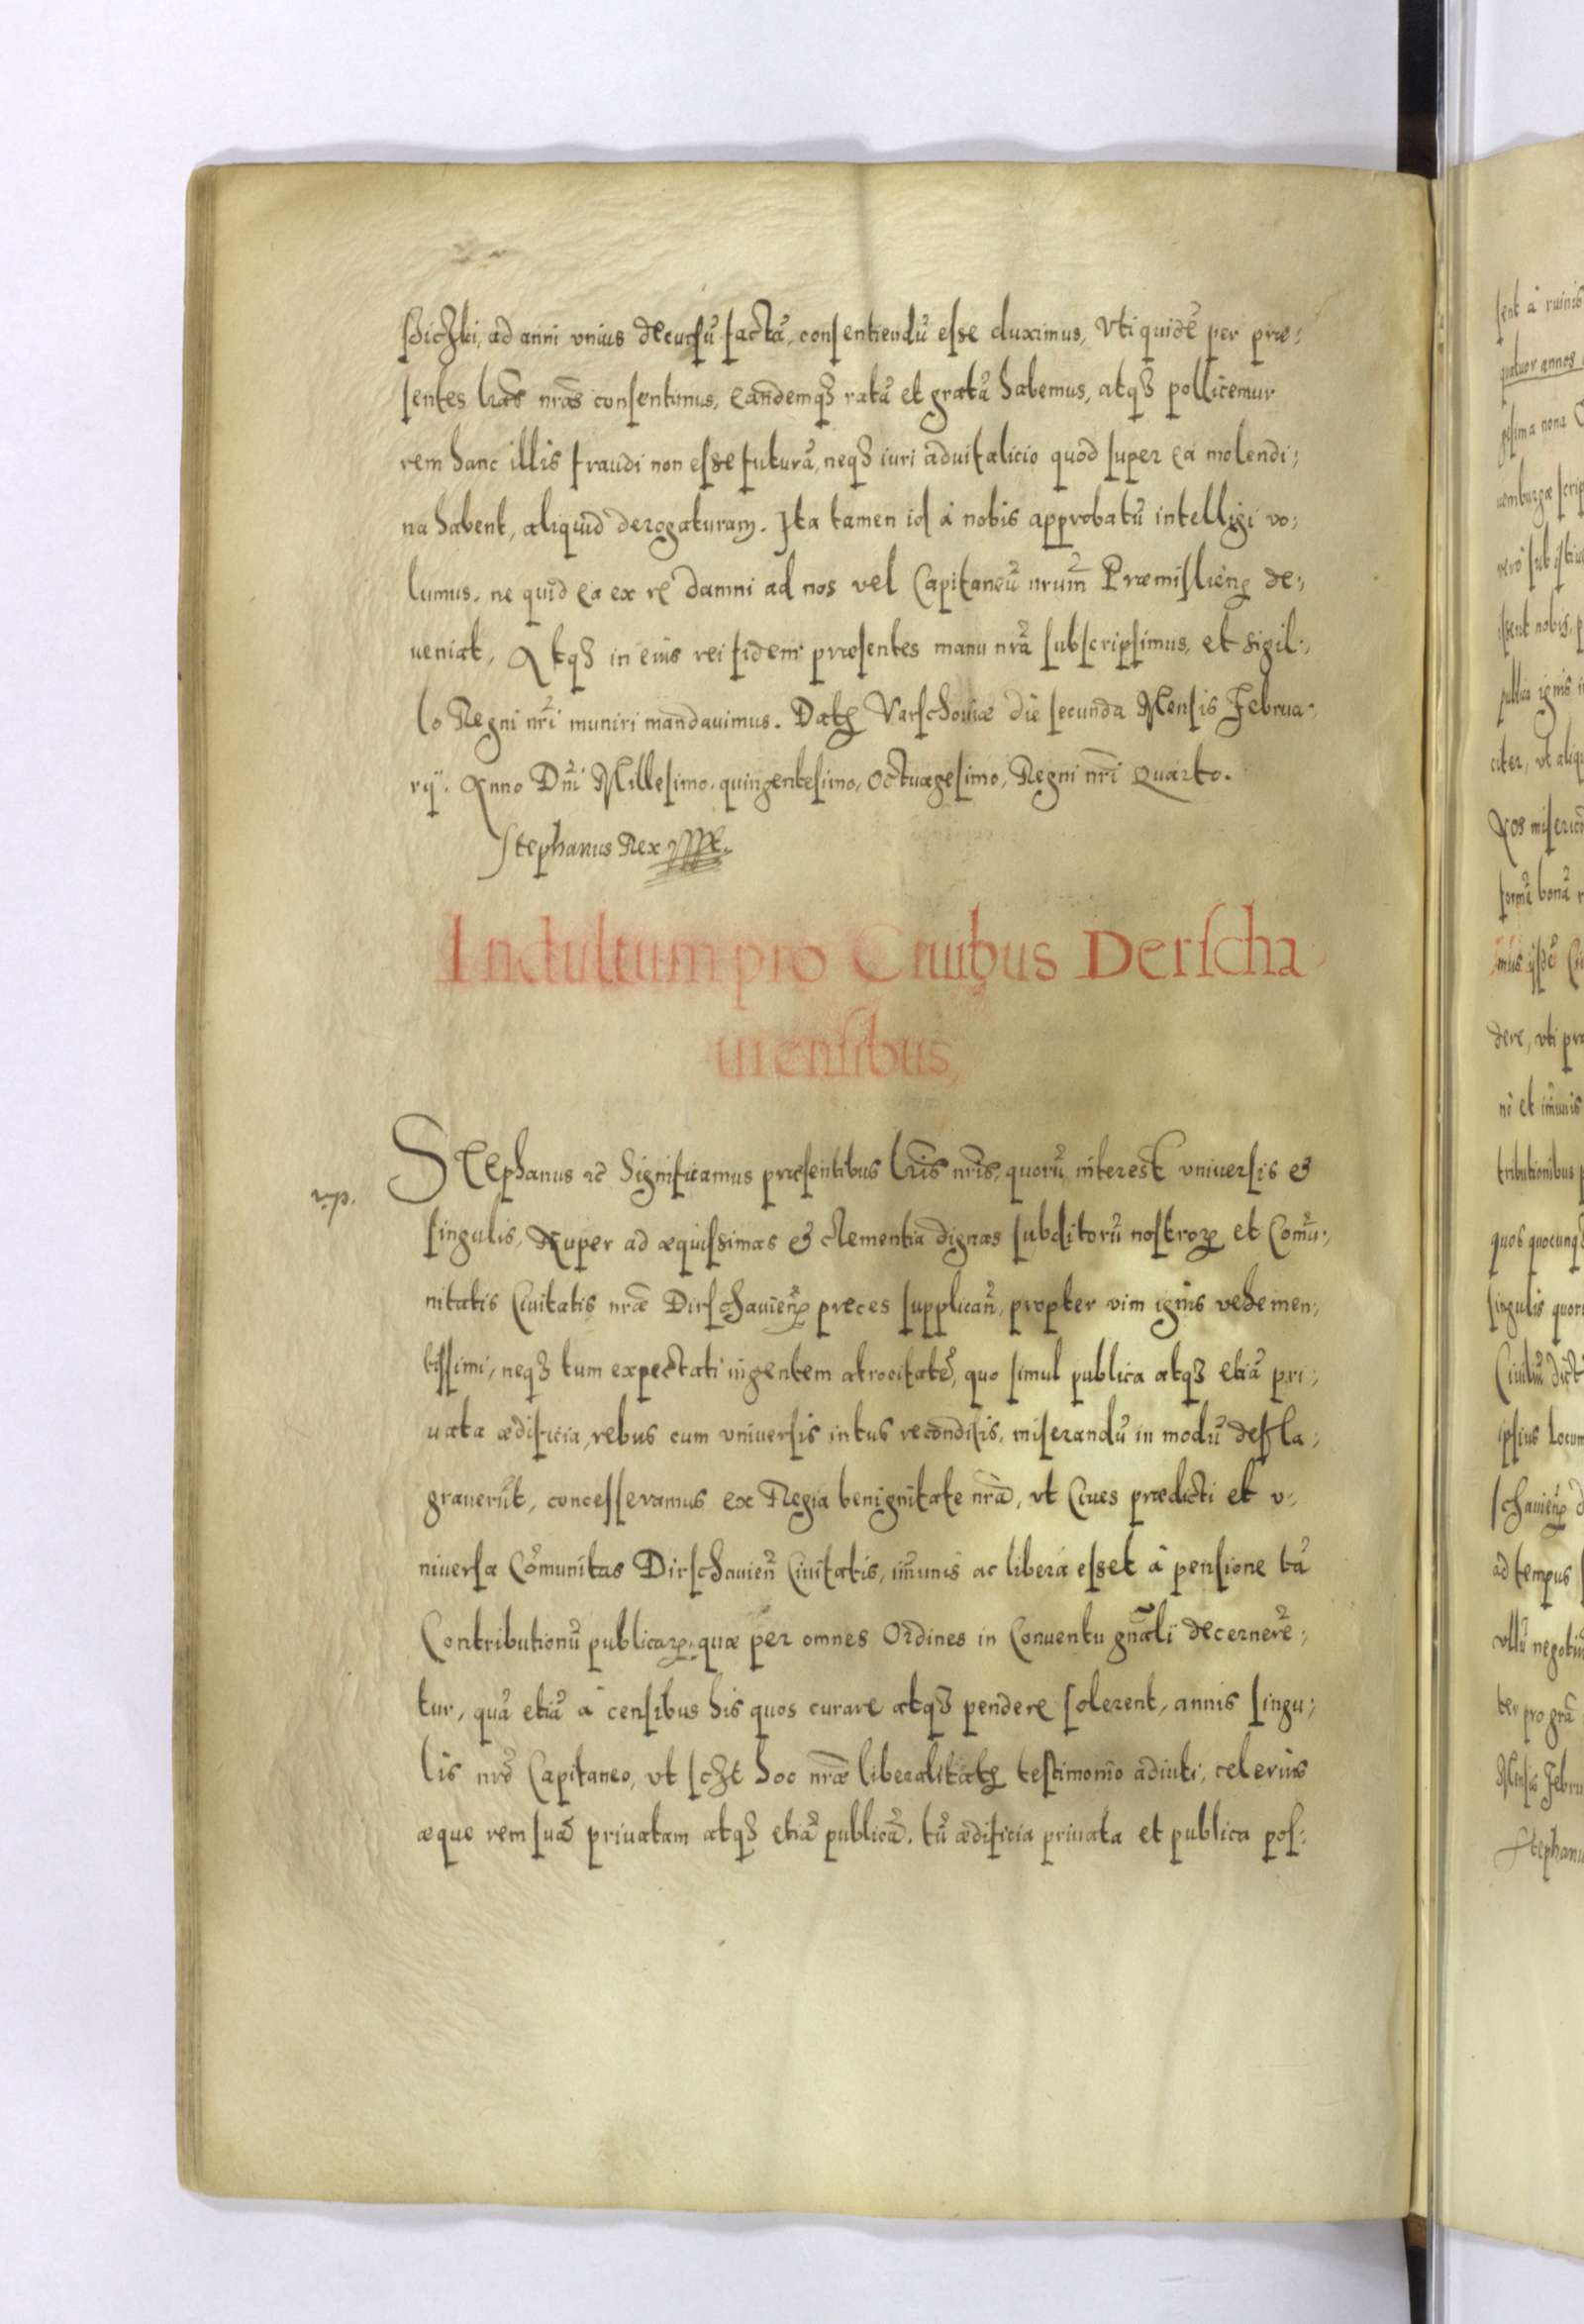 ad anni vnius decursũ factã, consentiendũ esse duximus, Vti quidẽ per præ:
sentes lr̃as nr̃as consentimus, eandemqꝫ ratã et gratã habemus, atqꝫ pollicemur
rem hanc illis fraudi non esse futurã, neqꝫ iuri aduitalicio quod super ea molendi:
na habent, aliquid derogaturam. Ita tamen id à nobis approbatũ intelligi vo:
lumus, ne quid ea ex re damni ad nos vel Capitaneũ nrum̃ Præmisliens̃ de:
ueniat, Atqꝫ in eius rei fidem præsentes manu nr̃a subscripsimus, et sigil:
lo Regni nr̃i muniri mandauimus. Datꝭ Varschouiæ die secunda Mensis Februa:
rÿ. Anno Dn̄i Millesimo, quingentesimo, Octuagesimo, Regni nr̃i Quarto.
Stephanus Rex
Indultum pro Ciuibus Derscha
uiensibus,
Stephanus ꝛc̃ Significamus præsentibus lr̃is nr̃is, quorũ interest vniuersis &
singulis, Nuper ad æquissimas & clementia dignas subditorũ nostroꝝ et Com̃u:
nitatis Ciuitatis nr̃æ Dirschauieñ preces supplicañ, propter vim ignis vehemen:
tissimi, neqꝫ tum expectati ingentem atrocitatẽ, quo simul publica atqꝫ etiã pri:
uata ædificia, rebus cum vniuersis intus reconditis, miserandũ in modũ defla:
grauerũt, concesseramus ex Regia benignitate nr̃a, vt Ciues prædicti et v:
niuersa Com̃unitas Dirschauieñ Ciuitatis, im̃unis ac libera esset à pensione tã
Contributionũ publicaꝝ, quæ per omnes Ordines in Conuentu gn̄ali decernerẽ:
tur, quã etiã à censibus his quos curare atqꝫ pendere solerent, annis singu:
lis nr̃o Capitaneo, vt sczt hoc nr̃æ liberalitatꝭ testimonio adiuti, celerius
æque rem suã priuatam atqꝫ etiã publicã, tũ ædificia priuata et publica pos: